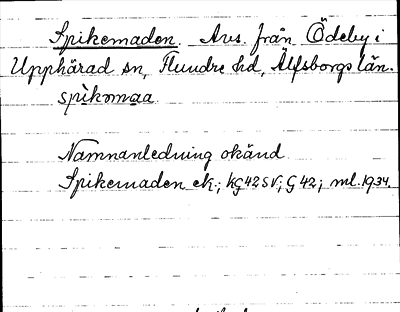 Spikemaden. Avs. från Ödeby i
Upphärad sn, Flundre hd, Älfsborgs län.
spikəmaa
Namnanledning okänd.
Spikemaden ek.; kg 42 SV; G 42; ml. 1934.